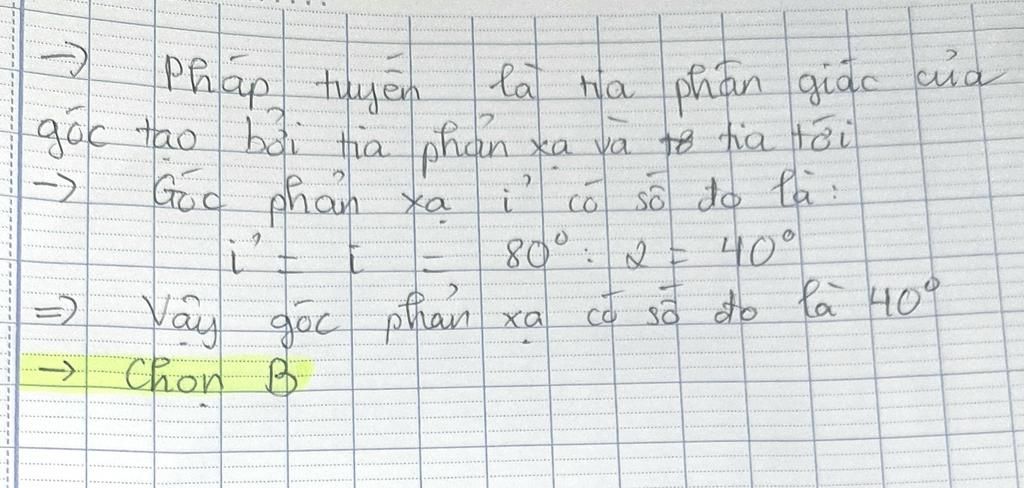 → Pháp tuyến là tia phân giác của
góc tạo bởi tia phản xạ và tia tới
→ Góc phản xạ i' có số đo là:
i' = i = 80° : 2 = 40°
=> Vậy góc phản xạ có số đo là 40°
→ Chọn B